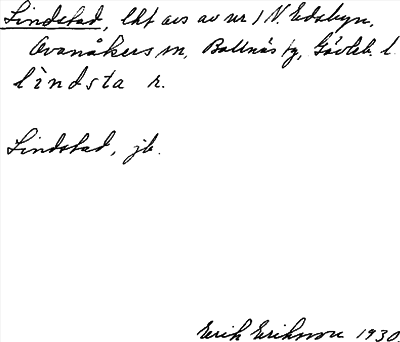 Lindstad, lht avs av nr 1 N. Edsbyn,
Ovanåkers sn, Bollnäs tg, Gävleb. l.
lìndsta r.
Lindstad, jb.
Erik Eriksson 1930.